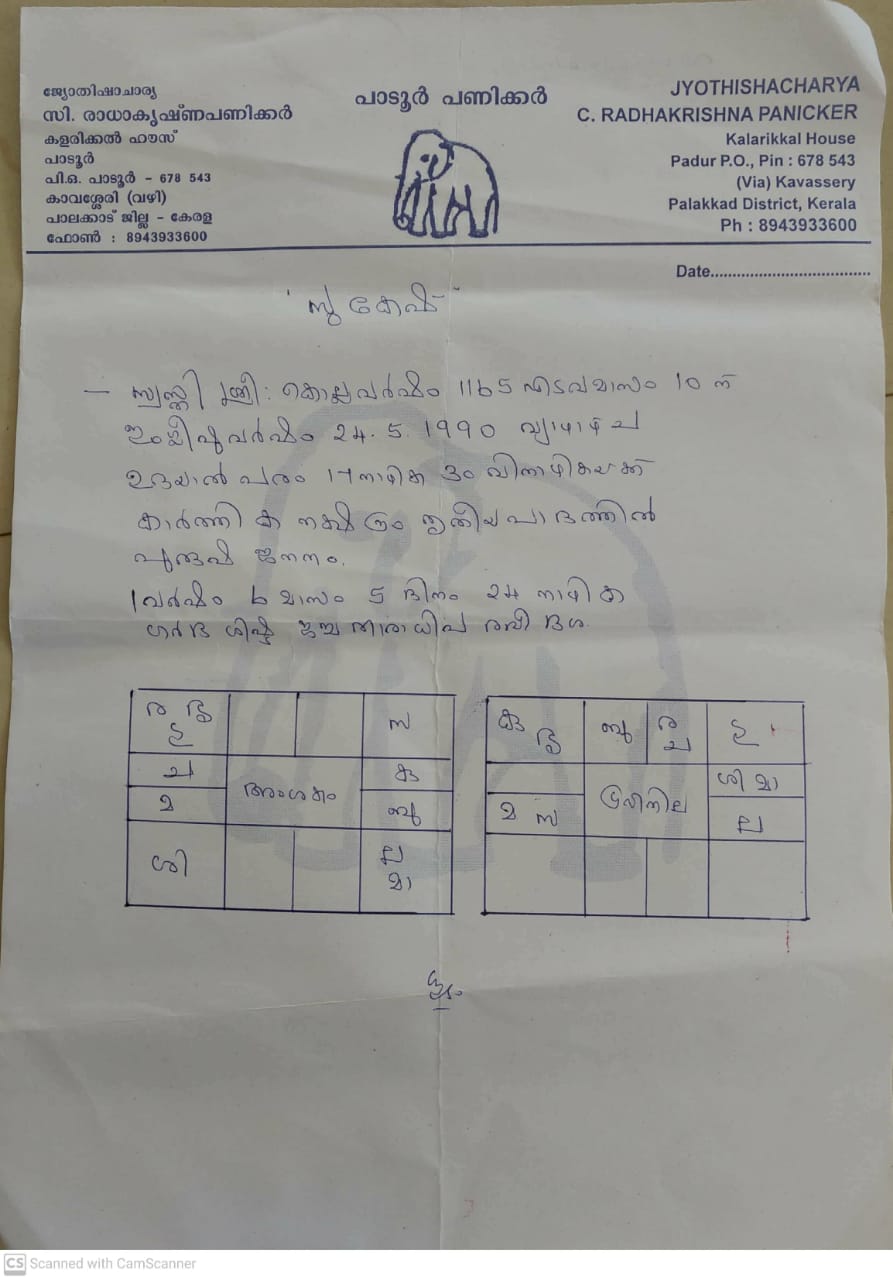 ജ്യോതിഷാചാര്യ
സി. രാധാകൃഷ്ണപണിക്കർ
കളരിക്കൽ ഹൗസ്
പാടൂർ
പി.ഒ. പാടൂർ - 678 543
കാവശ്ശേരി (വഴി)
പാലക്കാട് ജില്ല - കേരള
ഫോൺ : 8943933600
പാടൂർ പണിക്കർ
JYOTHISHACHARYA
C. RADHAKRISHNA PANICKER
Kalarikkal House
Padur P.O., Pin : 678 543
(Via) Kavassery
Palakkad District, Kerala
Ph : 8943933600
Date.....................................
സുകേഷ്
സ്വസ്തി ശ്രീ: കൊല്ലവർഷം 1165 എടവമാസം 10 ന്
ഇംഗ്ലീഷുവർഷം 24.5.1990 വ്യാഴാഴ്ച
ഉദയാൽ പരം 17 നാഴിക 30 വിനാഴികയ്ക്ക്
കാർത്തിക നക്ഷത്രം തൃതീയപാദത്തിൽ
പുരുഷ ജനനം.
1 വർഷം 6 മാസം 5 ദിനം 24 നാഴിക
ഗർഭ ശിഷ്ട രവി ദശ
ര
സ
ച
അംശകം
കു
മ
ബു
ശി
ല
മാ
കു
ബു
ര
ച
ശി മാ
മ സ
ല
CS Scanned with CamScanner